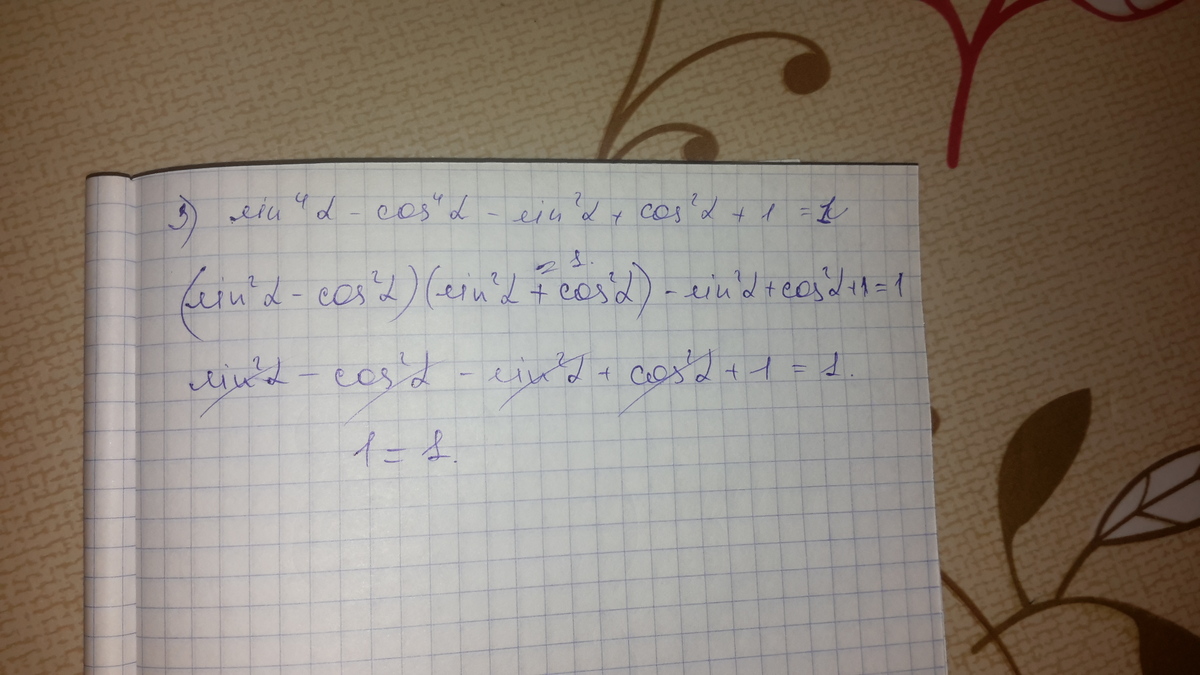 3) sin⁴α - cos⁴α - sin²α + cos²α + 1 = 1
= 1.
(sin²α - cos²α)(sin²α + cos²α) - sin²α + cos²α + 1 = 1
sin²α - cos²α - sin²α + cos²α + 1 = 1.
1 = 1.